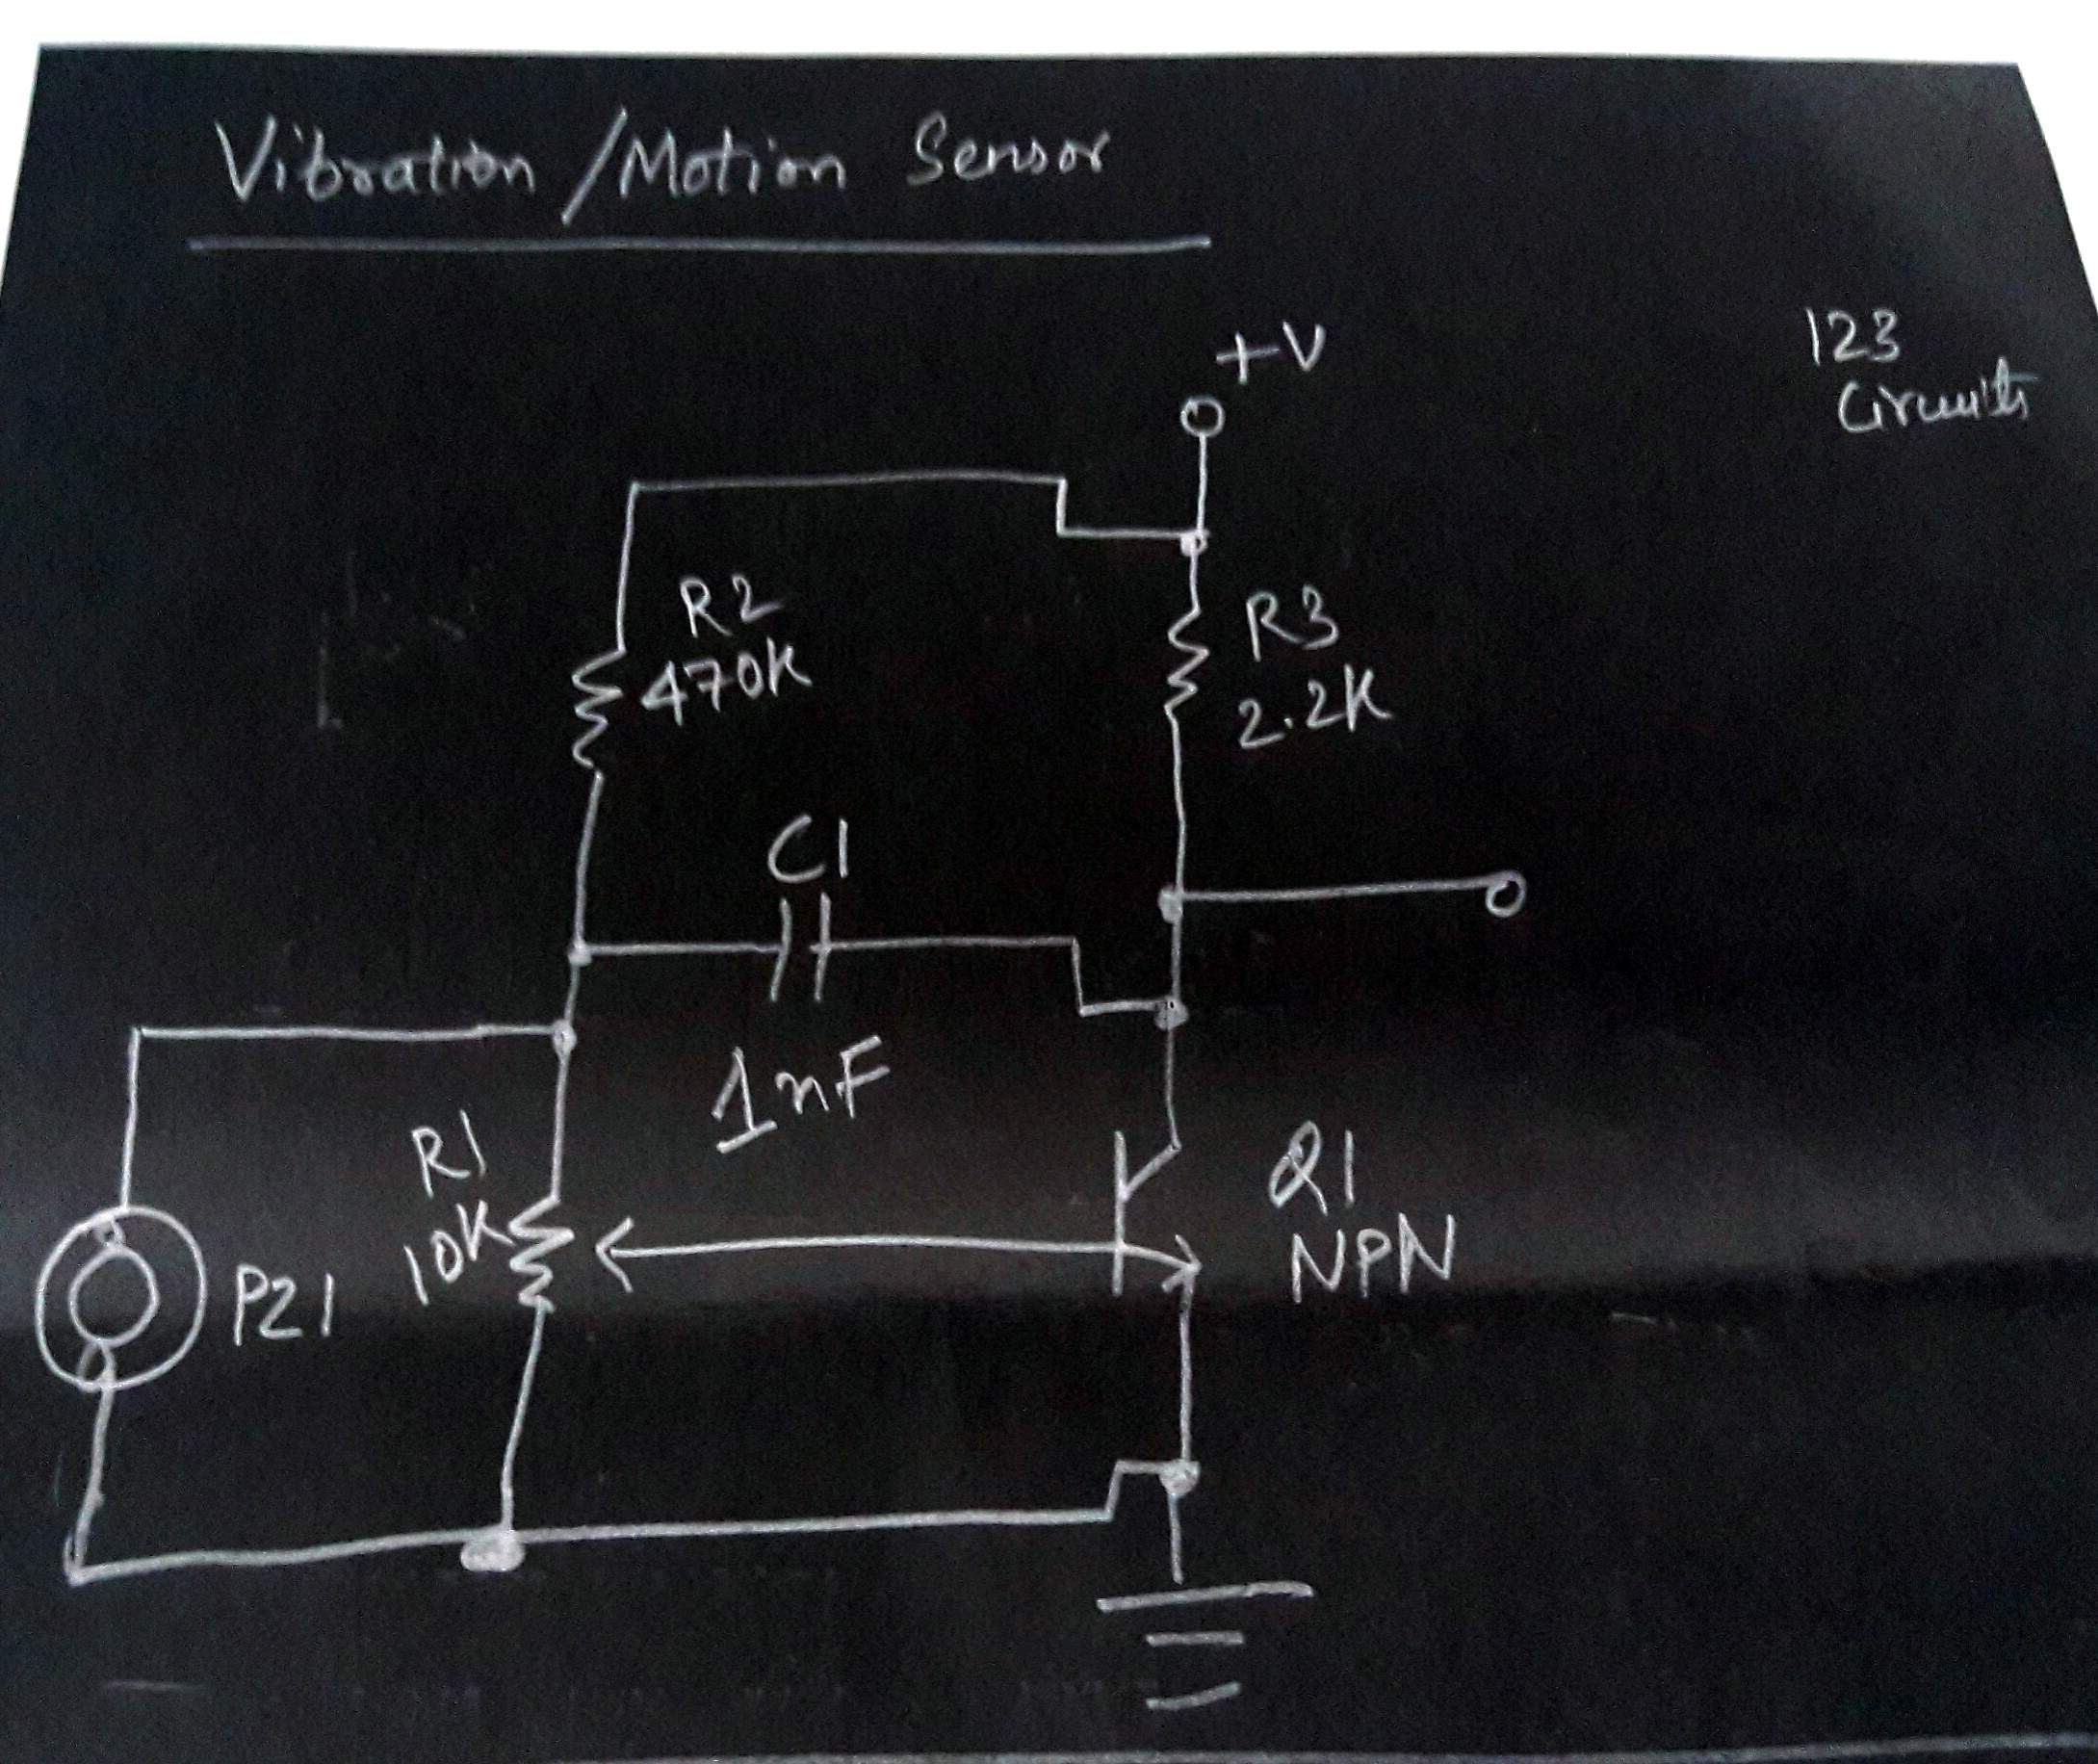 Vibration / Motion Sensor
123
Circuits
+V
R2
470K
R3
2.2K
C1
1nF
R1
10K
PZ1
Q1
NPN